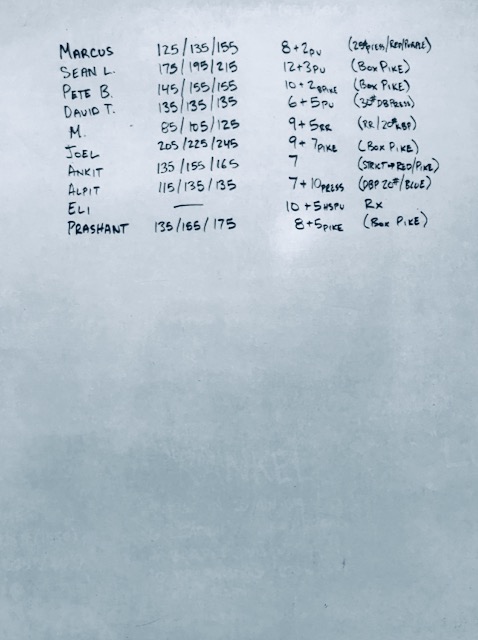 MARCUS 125/135/155 8+2PU (25#PRESS/RED/PURPLE)
SEAN L. 175/195/215 12+3PU (BOX PIKE)
PETE B. 145/155/155 10+2BPIKE (BOX PIKE)
DAVID T. 135/135/135 6+5PU (30#DBPRESS)
M. 85/105/125 9+5RR (RR/20#KBP)
JOEL 205/225/245 9+7PIKE (BOX PIKE)
ANKIT 135/155/165 7 (STRICT→RED/PIKE)
ALPIT 115/135/135 7+10PRESS (DBP 20#/BLUE)
ELI — 10+5HSPU RX
PRASHANT 135/155/175 8+5PIKE (BOX PIKE)